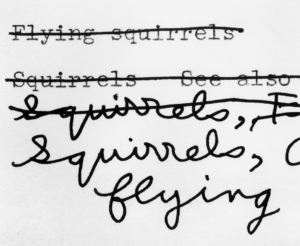 Flying squirrels
Squirrels See also
Squirrels, F
Squirrels,
flying